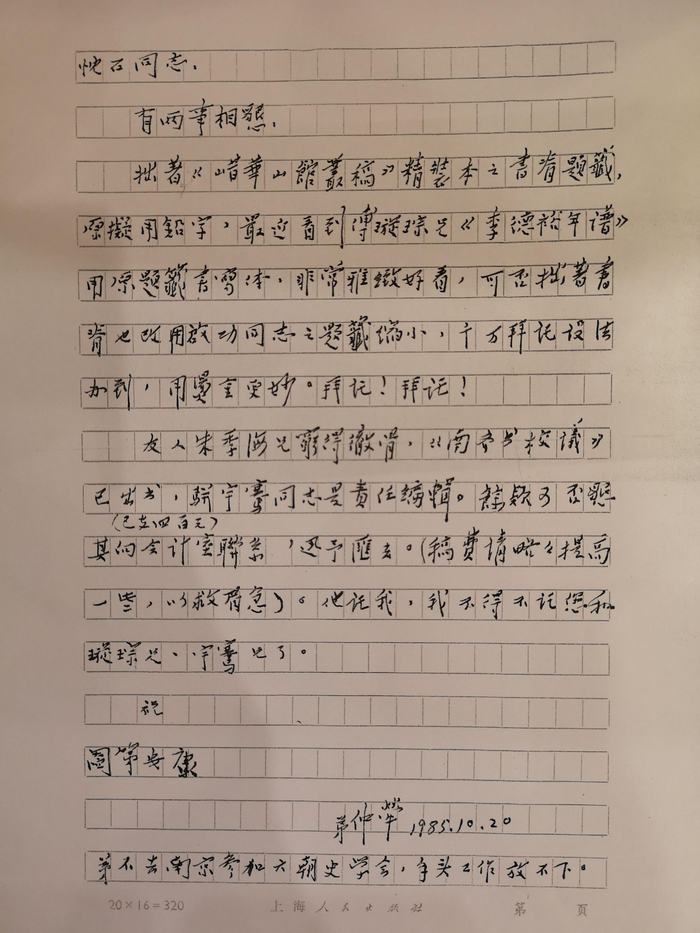 忱石同志：
有两事相懇。
拙著《峭華山館叢稿》精裝本之書脊題籤，
原擬用鉛字，最近看到傅璇琮兄《李德裕年谱》
用原題籤書寫体，非常雅緻好看，可否拙著書
脊也改用啟功同志之題籤缩小，千万拜託设法
办到，用燙金更妙。拜託！拜託！
友人朱季海兄窮得徹骨，《南齐书校議》
已出书，駢宇騫同志是責任编輯。餘款可否懇
（已支四百元）
其向会计室聯系，迅予匯去。（稿費請略々提高
一些，以救着急）。他託我，我不得不託您和
璇琮兄、宇騫兄了。
祝
闔第安康
弟仲犖 1985.10.20
弟不去南京参加六朝史学会，手头工作放不下。
20×16=320 上海人民出版社 第 页